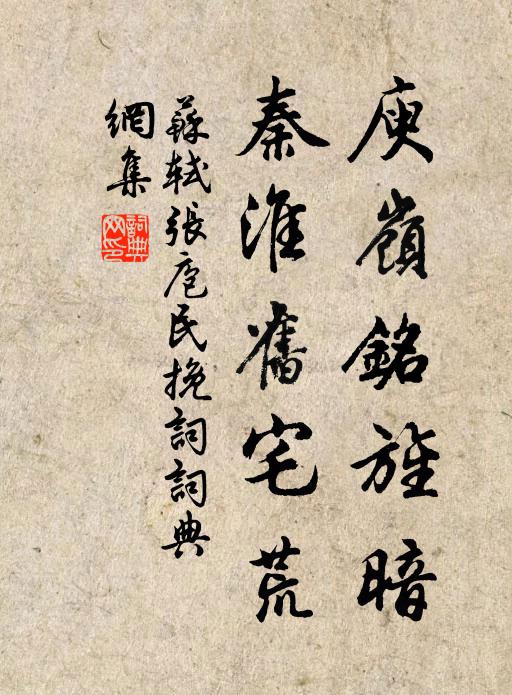 庾嶺銘旌暗
秦淮舊宅荒
蘇軾張庖民挽詞詞典
網集
詞典
网印